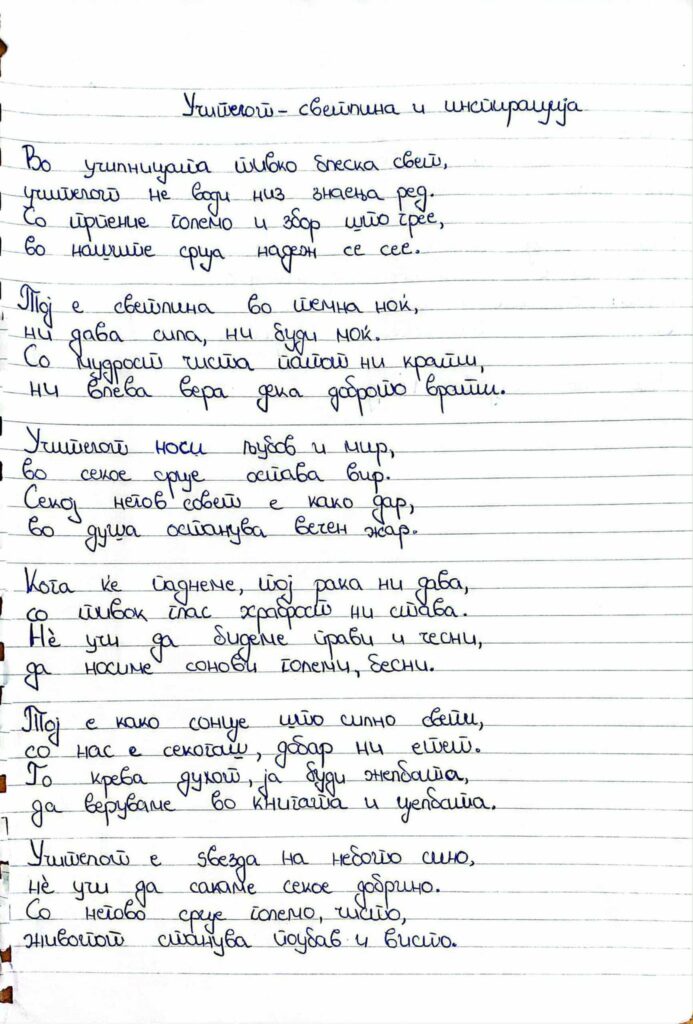 Учителот - светлина и инспирација
Во училницата тивко блеска свет,
учителот не води низ знаења ред.
Со трпение големо и збор што грее,
во нашите срца надеж се сее.
Тој е светлина во темна ноќ,
ни дава сила, ни буди моќ.
Со мудрост чиста патот ни крати,
ни влева вера дека доброто врати.
Учителот носи љубов и мир,
во секое срце остава вир.
Секој негов совет е како дар,
во душа останува вечен жар.
Кога ќе паднеме, тој рака ни дава,
со тивок глас храброст ни става.
Нѐ учи да бидеме прави и чесни,
да носиме сонови големи, бесни.
Тој е како сонце што силно свети,
со нас е секогаш, добар ни етет.
Го крева духот, ја буди желбата,
да веруваме во книгата и целбата.
Учителот е ѕвезда на небото сино,
нѐ учи да сакаме секое добрино.
Со негово срце големо, чисто,
животот станува поубав и висто.